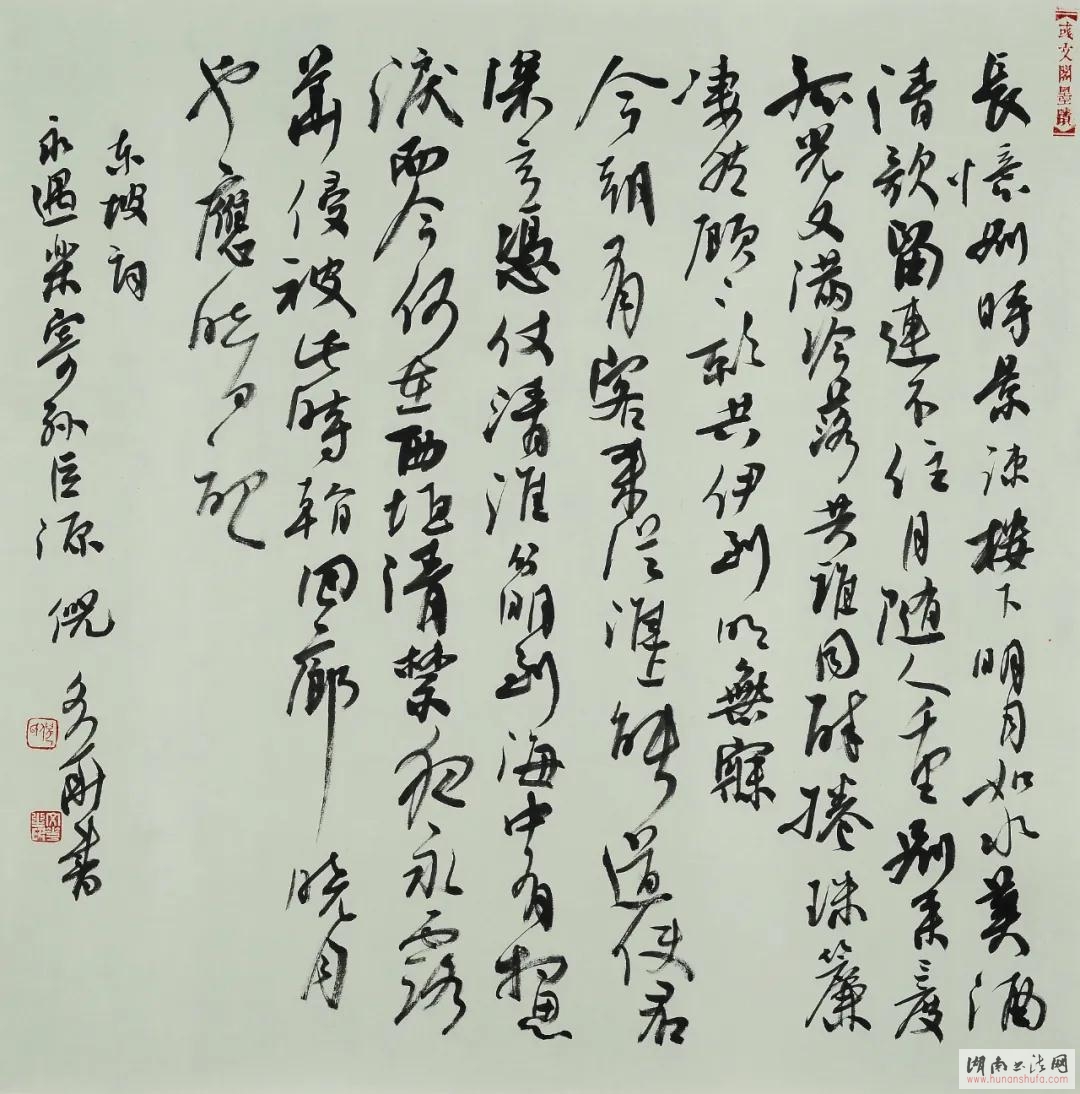 長憶別時景疎樓下明月如水美酒
清歌留連不住月随人千里別来三度
孤光又滿冷落共誰同醉捲珠簾
凄然顧影共伊到明無寐
今朝有客来從濉上能道使君
深意憑仗清淮分明到海中有相思
淚而今何在西垣清禁夜永露
華侵被此時看回廊曉月
也應暗記
东坡詞
永遇樂寄孫巨源 倪文華書
湖南书法网
www.hunanshufa.com